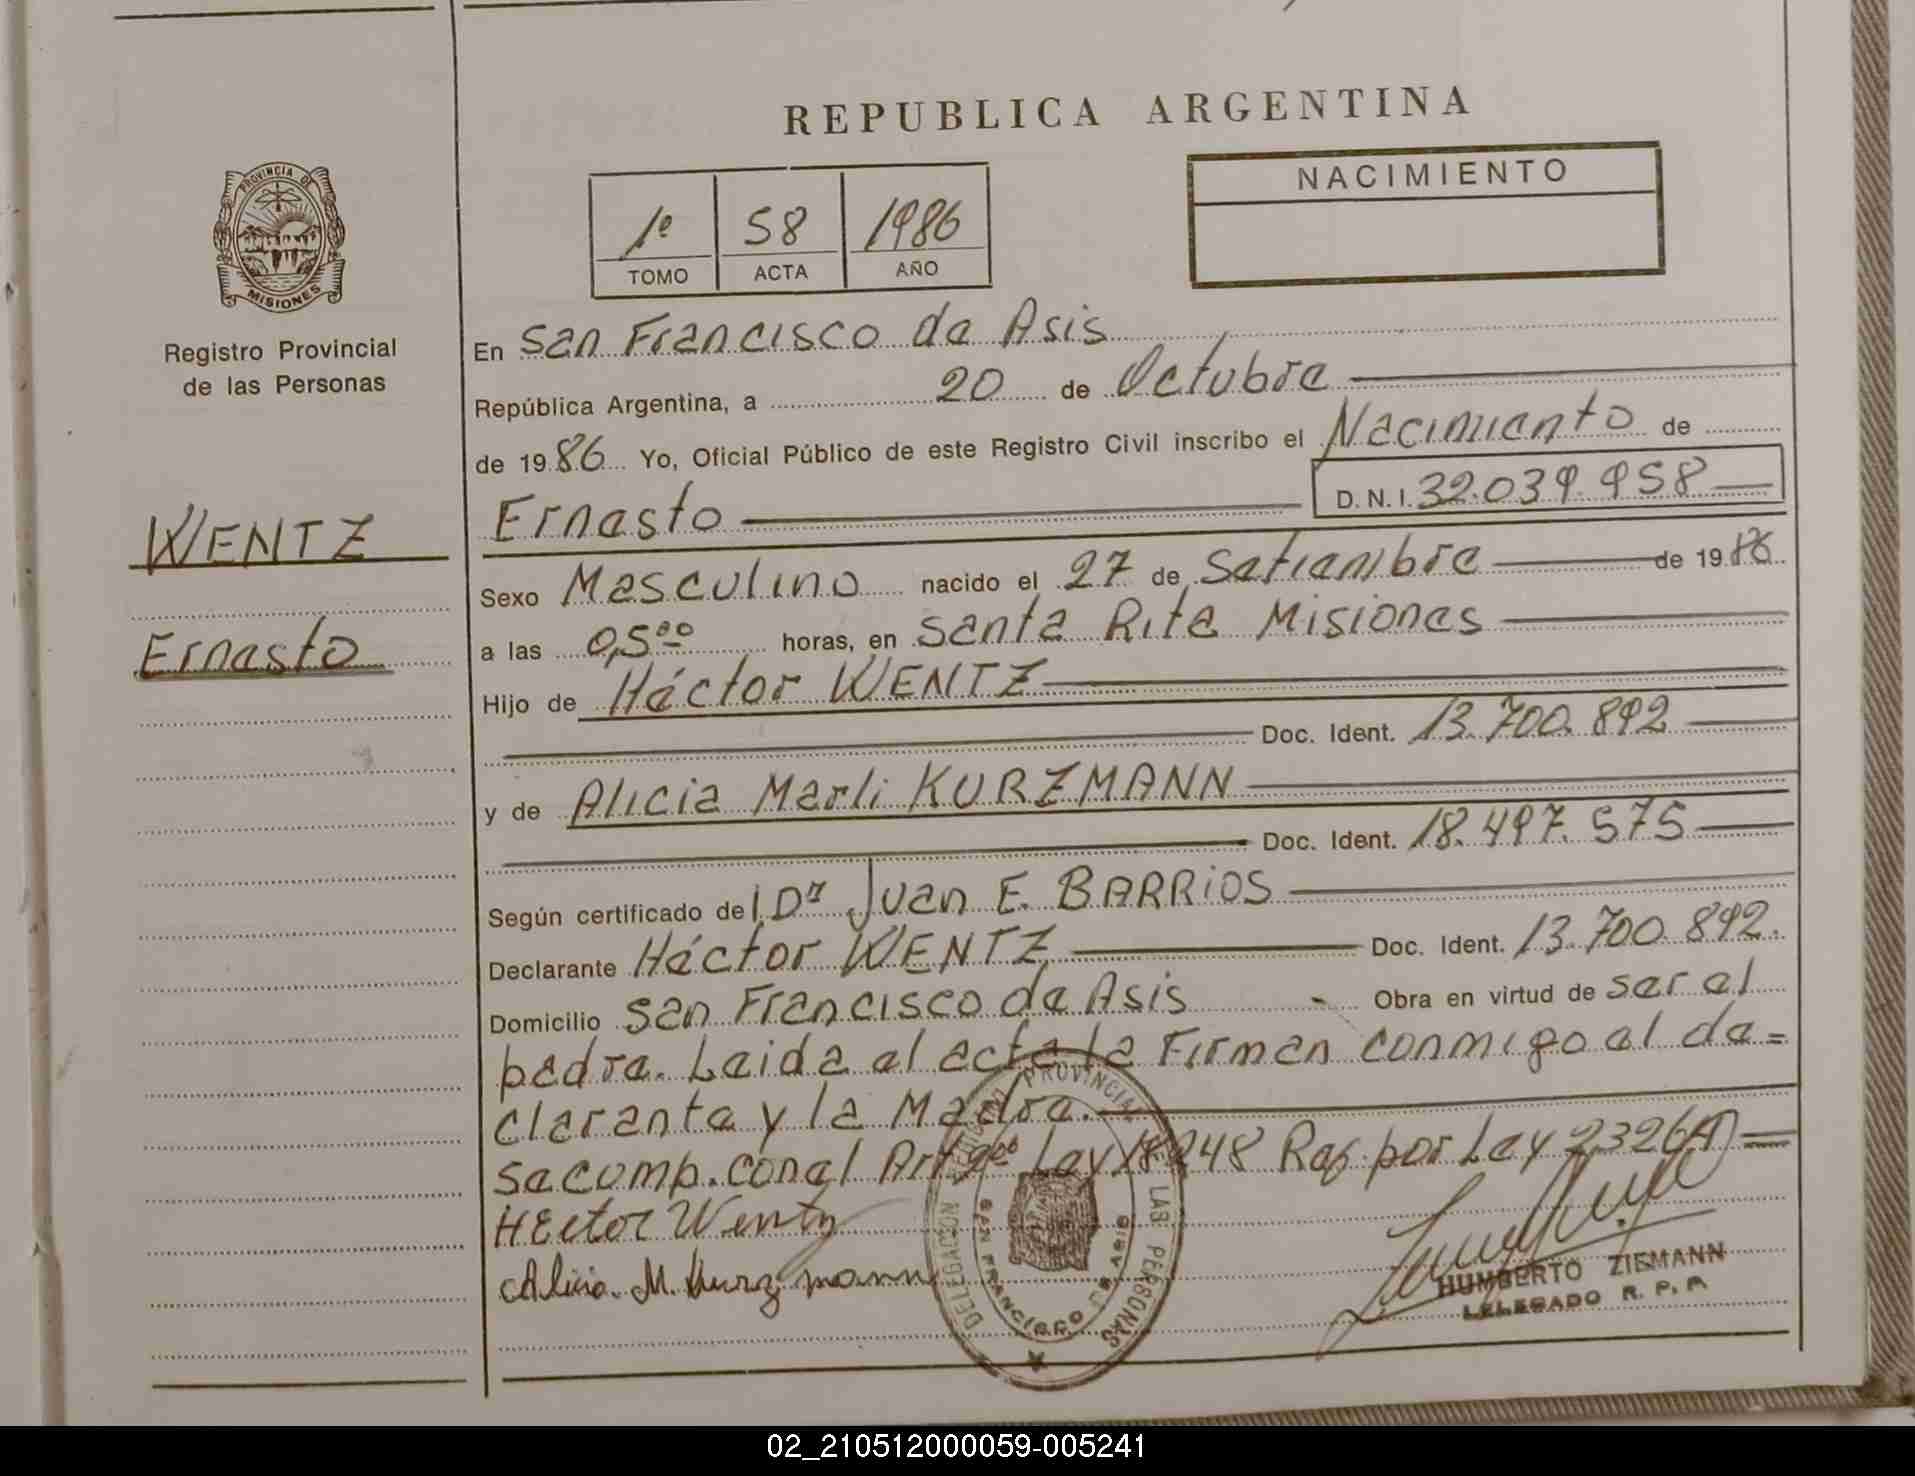 REPUBLICA ARGENTINA
PROVINCIA DE
MISIONES
Registro Provincial
de las Personas
1º 58 1986
TOMO ACTA AÑO
NACIMIENTO
WENTZ
Ernesto
En San Francisco de Asis
República Argentina, a 20 de Octubre
de 1986 Yo, Oficial Público de este Registro Civil inscribo el Nacimiento de
Ernesto D.N.I. 32.039.958
Sexo Masculino nacido el 27 de Setiembre de 1986
a las 0,5⁰⁰ horas, en Santa Rita Misiones
Hijo de Héctor WENTZ
Doc. Ident. 13.700.892
y de Alicia Marli KURZMANN
Doc. Ident. 18.497.575
Según certificado del Dr Juan E. BARRIOS
Declarante Héctor WENTZ Doc. Ident. 13.700.892.
Domicilio San Francisco de Asis Obra en virtud de ser el
padre. Leida el acta la Firman conmigo el de=
clarante y la Madre.
se comp. con el Art Ley 18248 Ref. por Ley 23264
HEctor Wentz
Alicia M. Kurzmann
DELEGACION REGISTRO PROVINCIAL DE LAS PERSONAS
SAN FRANCISCO DE ASIS
HUMBERTO ZIEMANN
DELEGADO R. P. P.
02_210512000059-005241